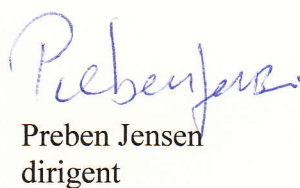 Preben Jensen
Preben Jensen
dirigent